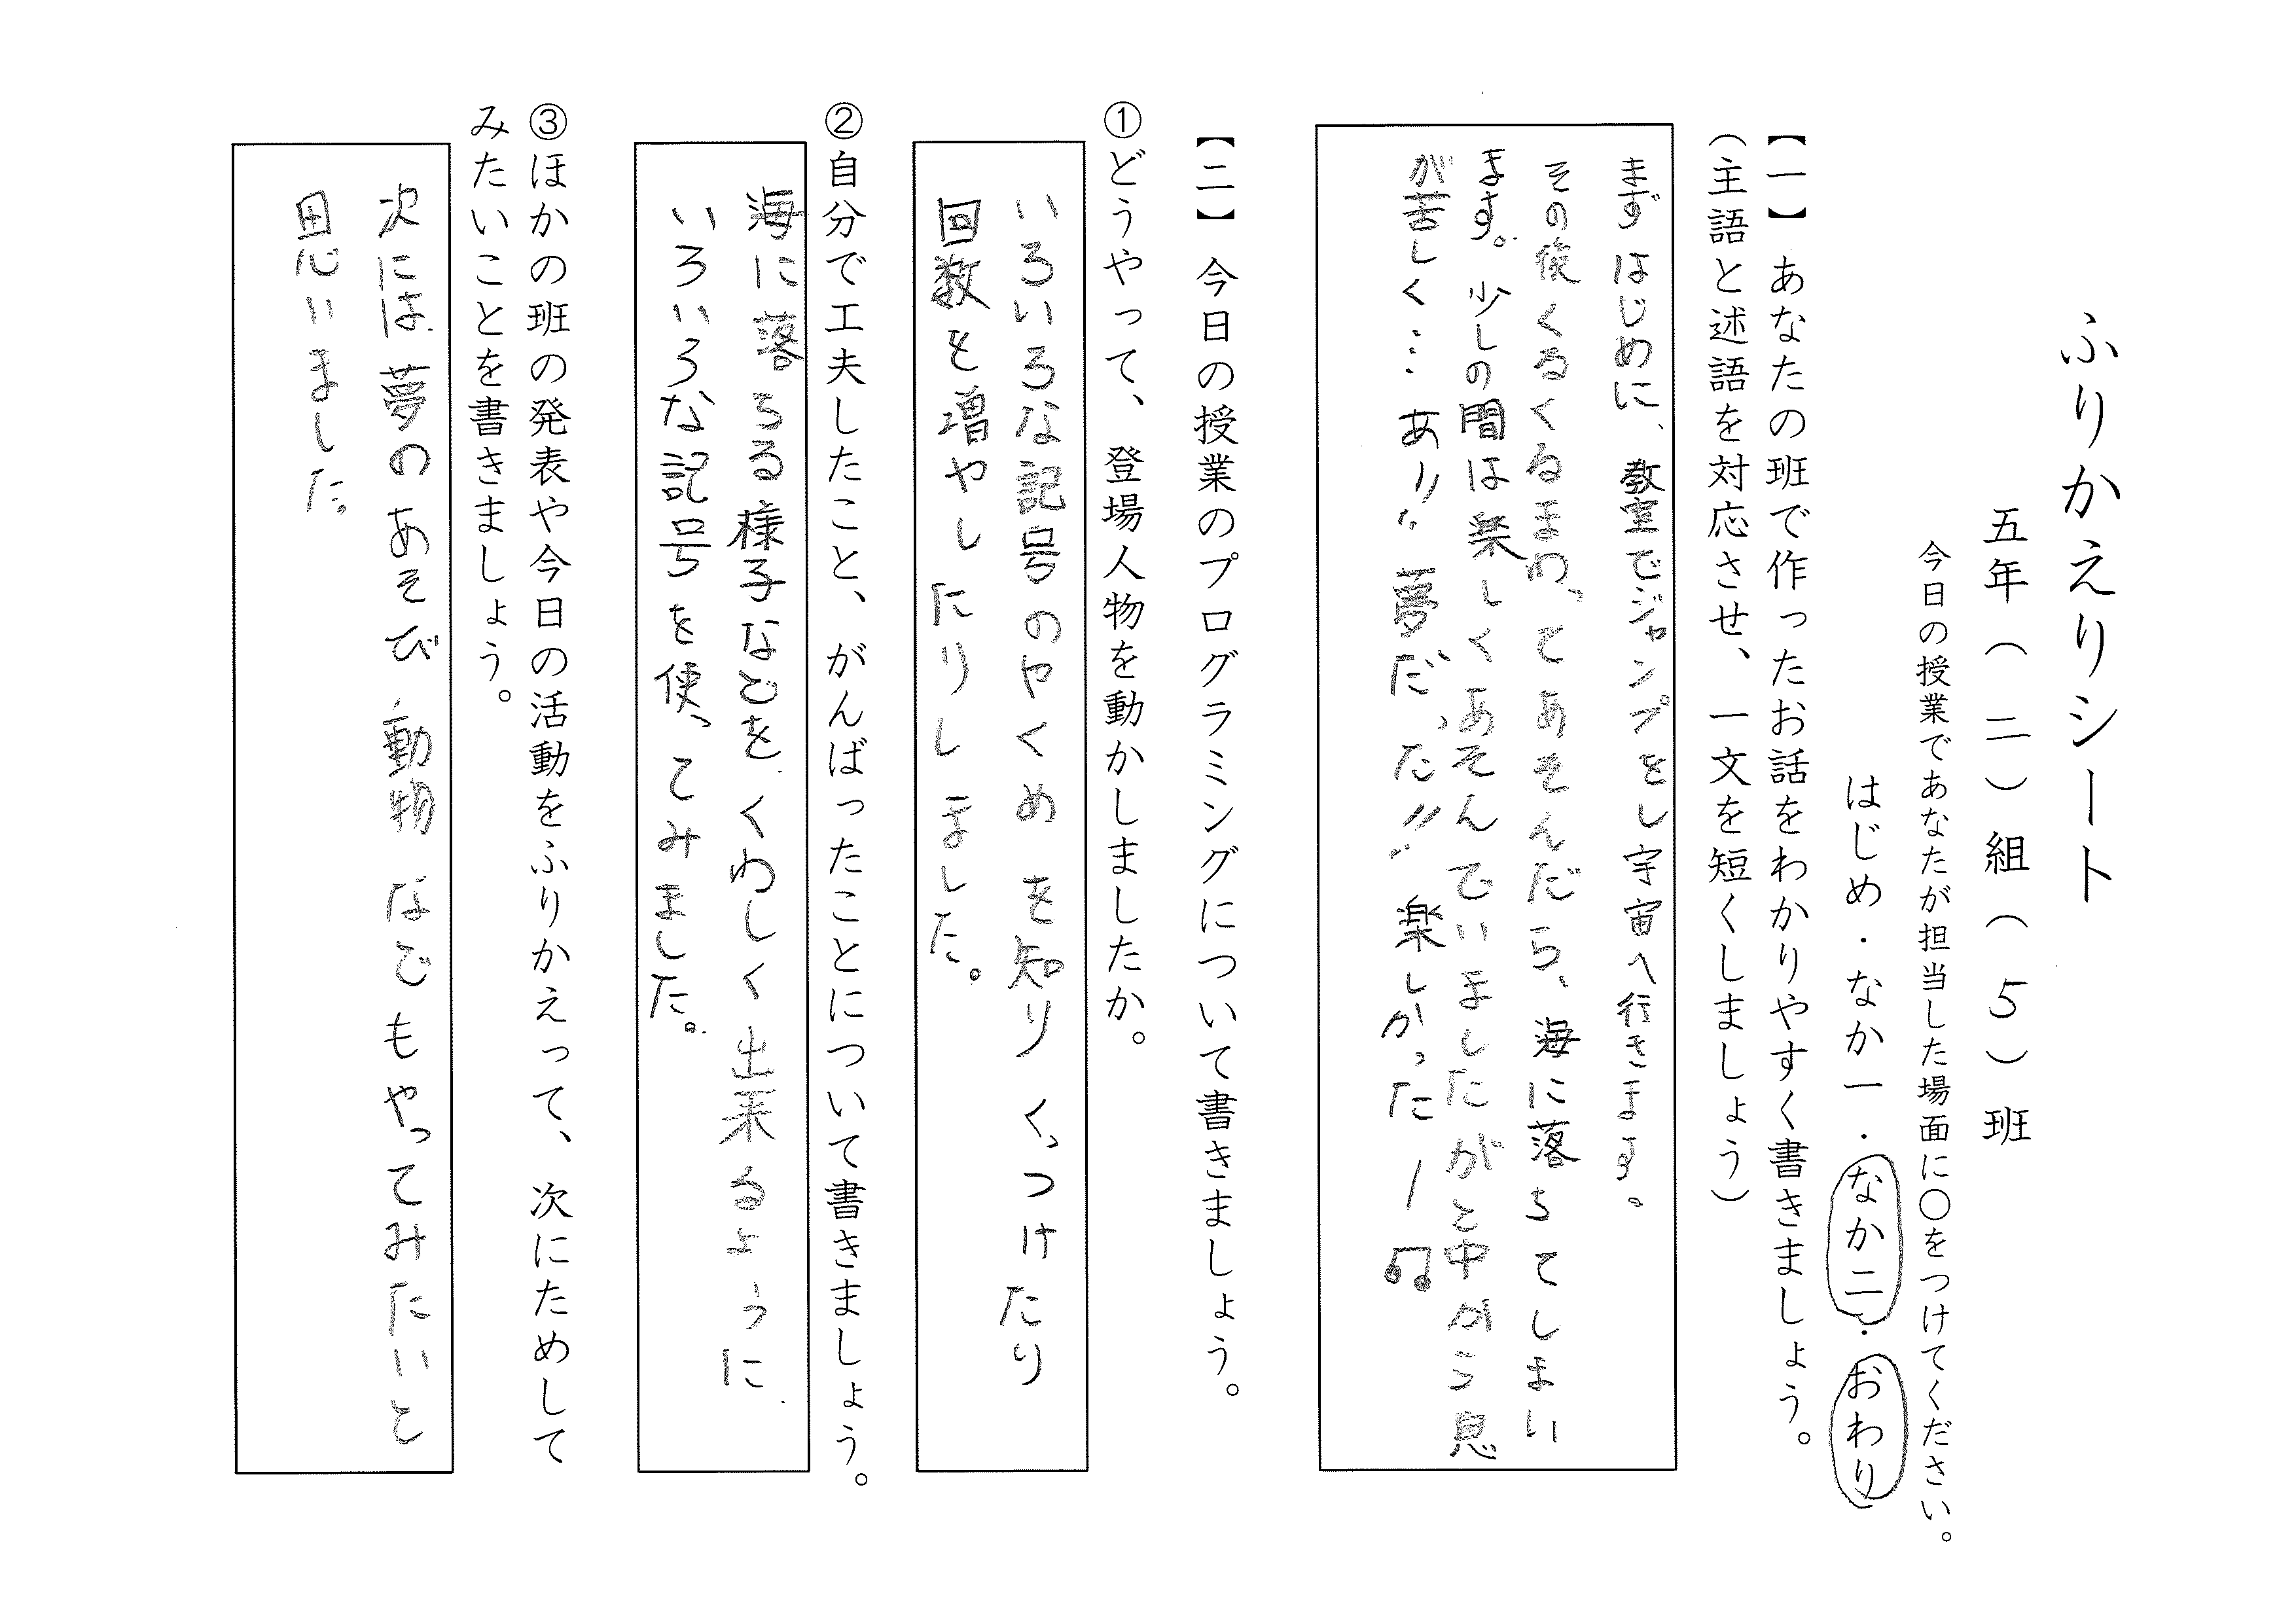 ふりかえりシート
五年（二）組（５）班
今日の授業であなたが担当した場面に○をつけてください。
はじめ・なか一・なか二・おわり
【一】あなたの班で作ったお話をわかりやすく書きましょう。
（主語と述語を対応させ、一文を短くしましょう）
まずはじめに、教室でジャンプをし宇宙へ行きます。
その後くるくるまわってあそんだら、海に落ちてしまい
ます。少しの間は楽しくあそんでいましたがと中から息
が苦しく…あ!!夢だった!!楽しかったー♫
【二】今日の授業のプログラミングについて書きましょう。
①どうやって、登場人物を動かしましたか。
いろいろな記号のやくめを知りくっつけたり
回数を増やしたりしました。
②自分で工夫したこと、がんばったことについて書きましょう。
海に落ちる様子などをくわしく出来るように
いろいろな記号を使ってみました。
③ほかの班の発表や今日の活動をふりかえって、次にためして
みたいことを書きましょう。
次には夢のあそび動物などもやってみたいと
思いました。